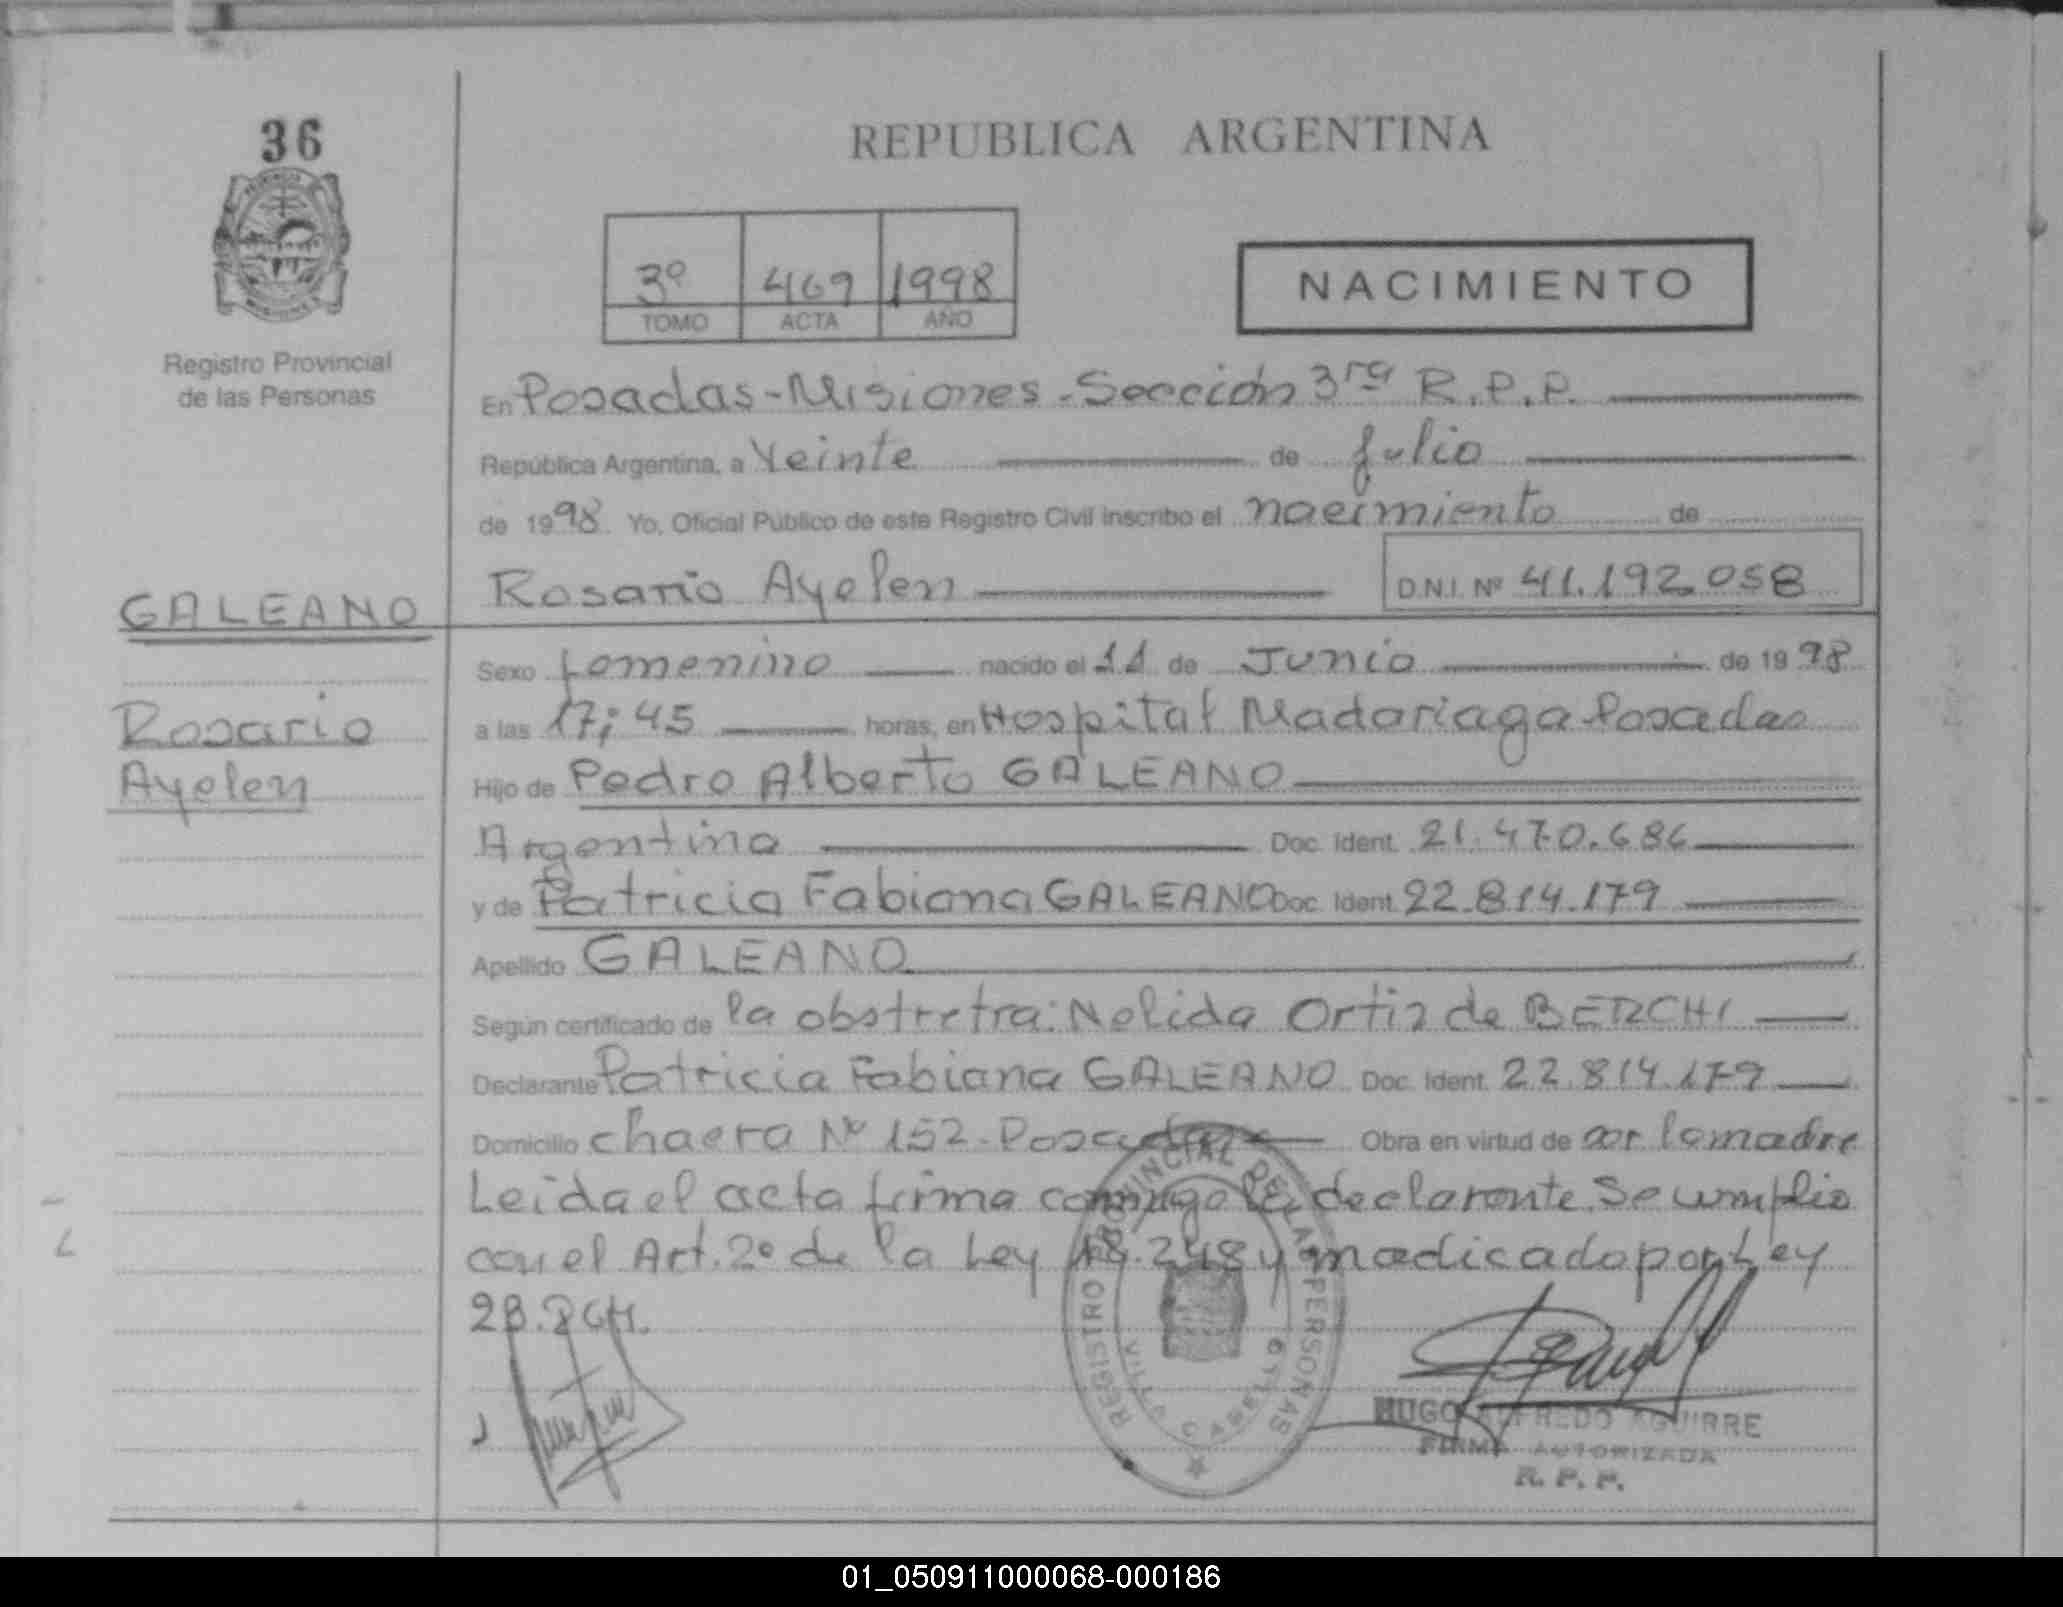 36
REPUBLICA ARGENTINA
3º 469 1998
TOMO ACTA AÑO
NACIMIENTO
Registro Provincial
de las Personas
En Posadas-Misiones-Sección 3ra R.P.P.
República Argentina, a Veinte de Julio
de 1998. Yo, Oficial Público de este Registro Civil inscribo el nacimiento de
Rosario Ayelen D.N.I. Nº 41.192.058
GALEANO
Rosario
Ayelen
Sexo femenino nacido el 11 de Junio de 1998
a las 17;45 horas, en Hospital Madariaga Posadas
Hijo de Pedro Alberto GALEANO
Argentina Doc. Ident. 21.470.686
y de Patricia Fabiana GALEANO Doc. Ident. 22.814.179
Apellido GALEANO
Según certificado de la obstretra: Nelida Ortiz de BERCHI
Declarante Patricia Fabiana GALEANO Doc. Ident. 22.814.179
Domicilio chacra Nº 152-Posadas Obra en virtud de ser la madre
Leida el acta firma conmigo la declarante. Se cumplio
con el Art. 2º de la Ley 18.248 y modicado por Ley
REGISTRO PROVINCIAL DE LAS PERSONAS
VILLA CABELLO
HUGO ALFREDO AGUIRRE
FIRMA AUTORIZADA
R. P. P.
01_050911000068-000186